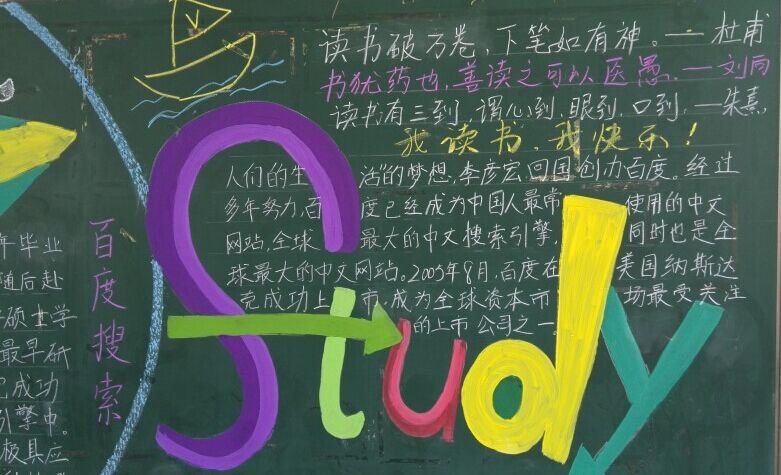 读书破万卷，下笔如有神。——杜甫
书犹药也，善读之可以医愚。——刘向
读书有三到，谓心到，眼到，口到，——朱熹
我读书，我快乐！
人们的生活”的梦想，李彦宏回国创办百度。经过
多年努力，百度已经成为中国人最常使用的中文
网站，全球最大的中文搜索引擎，同时也是全
球最大的中文网站。2005年8月，百度在美国纳斯达
克成功上市，成为全球资本市场最受关注
的上市公司之一。
Study
百度搜索
年毕业
随后赴
硕士学
最早研
成功
引擎中。
极具应